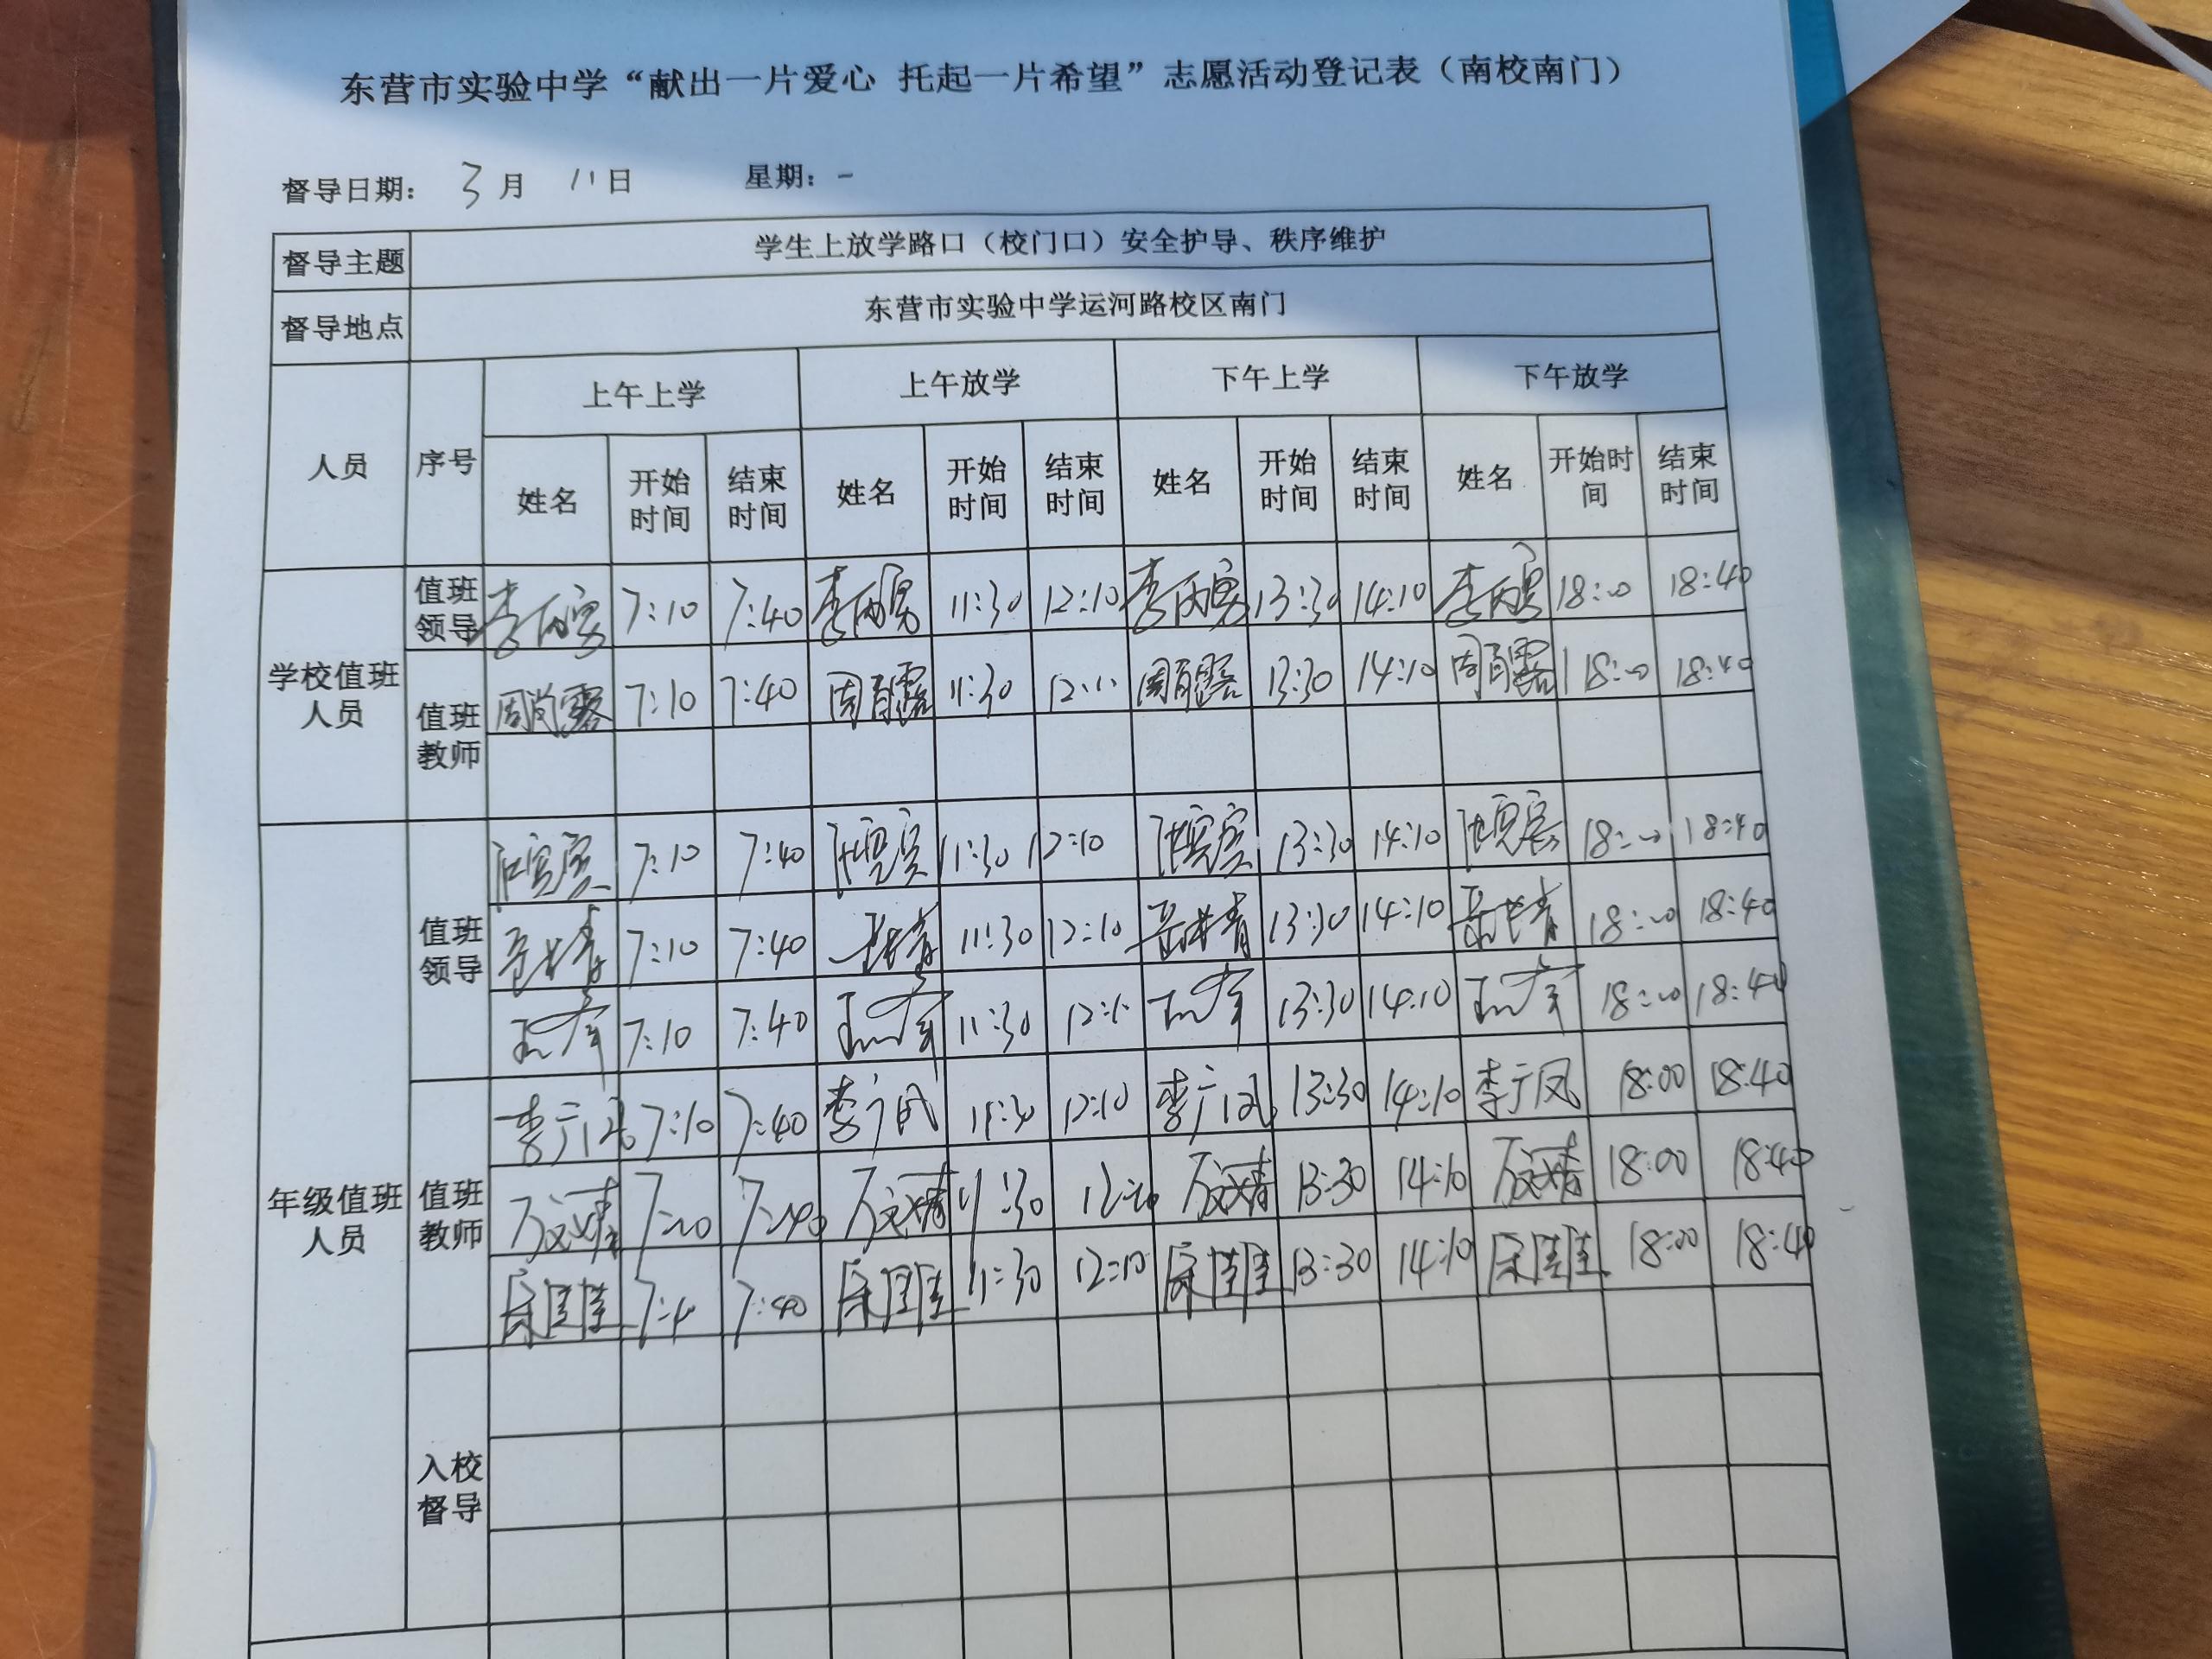 东营市实验中学“献出一片爱心 托起一片希望”志愿活动登记表（南校南门）
督导日期： 3 月 11 日 星期：一
督导主题 学生上放学路口（校门口）安全护导、秩序维护
督导地点 东营市实验中学运河路校区南门
人员 序号 上午上学 上午放学 下午上学 下午放学
姓名 开始时间 结束时间 姓名 开始时间 结束时间 姓名 开始时间 结束时间 姓名 开始时间 结束时间
学校值班人员
值班领导 7:10 7:40 11:30 12:10 13:30 14:10 18:00 18:40
值班教师 7:10 7:40 11:30 13:30 14:10 18:00 18:40
年级值班人员
值班领导 7:10 7:40 11:30 12:10 13:30 14:10 18:00 18:40
7:10 7:40 11:30 12:10 13:30 14:10 18:00 18:40
7:10 7:40 11:30 13:30 14:10 18:00 18:40
值班教师 李广凤 7:10 7:40 李广凤 11:30 12:10 李广凤 13:30 14:10 李广凤 18:00 18:40
万文婧 7:40 万文婧 11:30 万文婧 13:30 14:10 万文婧 18:00 18:40
宋佳佳 7:40 宋佳佳 11:30 12:10 宋佳佳 13:30 14:10 宋佳佳 18:00 18:40
入校督导